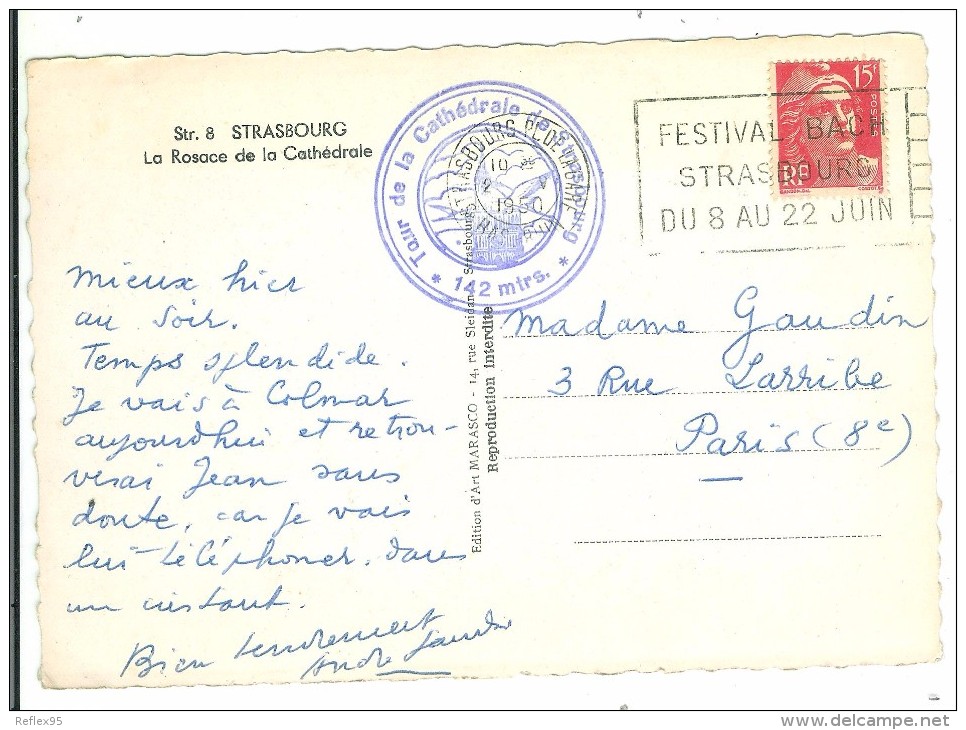 Str. 8 STRASBOURG
La Rosace de la Cathédrale
Tour de la Cathédrale de Strasbourg
* 142 mtrs. *
STRASBOURG
10 H
1950
BAS-RHIN
FESTIVAL BACH
STRASBOURG
DU 8 AU 22 JUIN
15F
POSTES
RF
GANDON
Mieux hier
au soir.
Temps splendide.
Je vais à Colmar
aujourd'hui et retrou-
verai Jean sans
doute, car je vais
lui téléphoner, dans
un instant.
Bien tendrement
André Gaudin
Edition d'Art MARASCO - 14, rue Sleidan - Strasbourg
Reproduction interdite
Madame Gaudin
3 Rue Larribe
Paris (8e)
Reflex95
www.delcampe.net